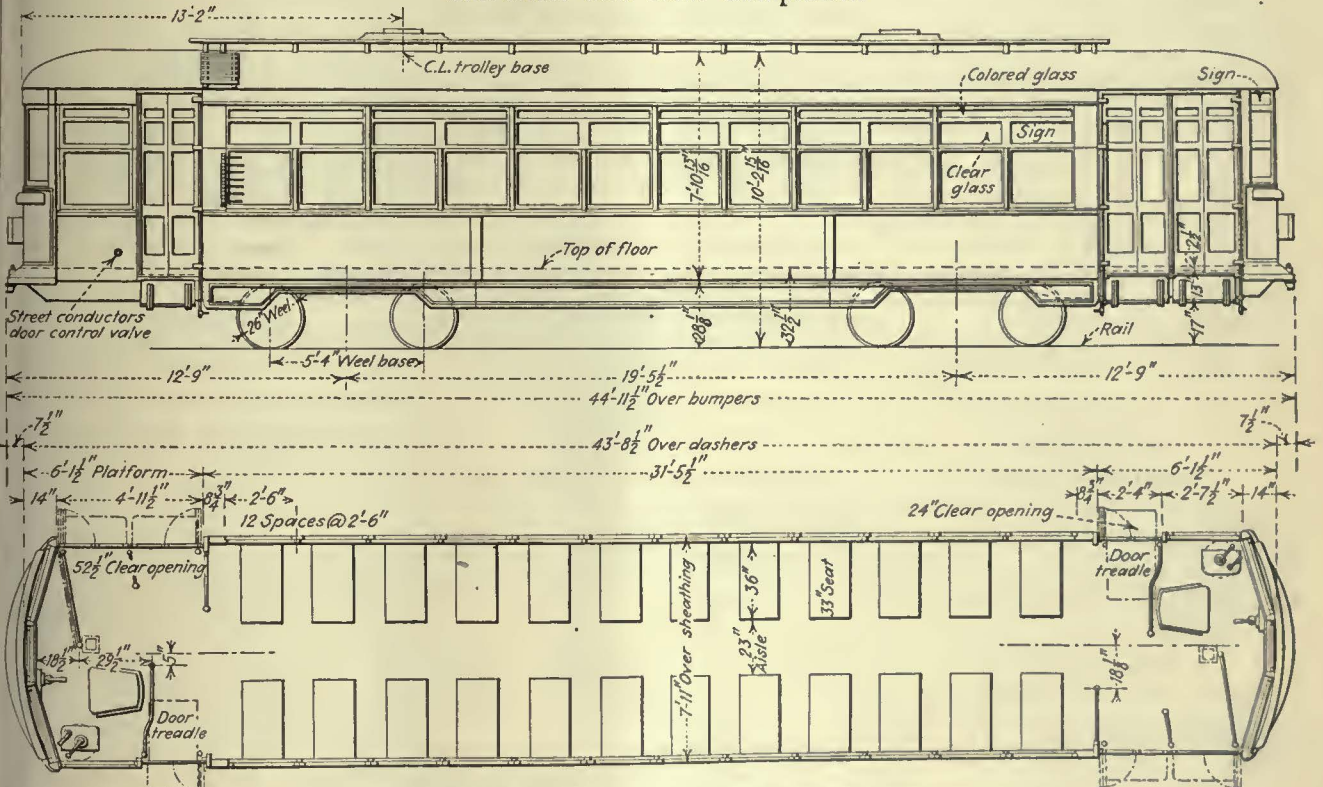 13'-2"
C.L. trolley base
Colored glass
Sign
Sign
Clear glass
7'-10 13/16"
10'-2 15/16"
Top of floor
2 1/2"
15"
Street conductors door control valve
26" Weel
28 1/8"
32 1/2"
Rail
17"
5'-4" Weel base
12'-9"
19'-5 1/2"
12'-9"
44'-11 1/2" Over bumpers
7 1/2"
43'-8 1/2" Over dashers
7 1/2"
6'-1 1/2" Platform
31'-5 1/2"
6'-1 1/2"
14"
4'-11 1/2"
8 3/4"
2'-6"
8 3/4"
2'-4"
2'-7 1/2"
14"
12 Spaces @ 2'-6"
24" Clear opening
52 1/2" Clear opening
Door treadle
36"
33" Seat
7'-11" Over sheathing
23" Aisle
18 1/2"
29 1/2"
5"
18 1/8"
Door treadle